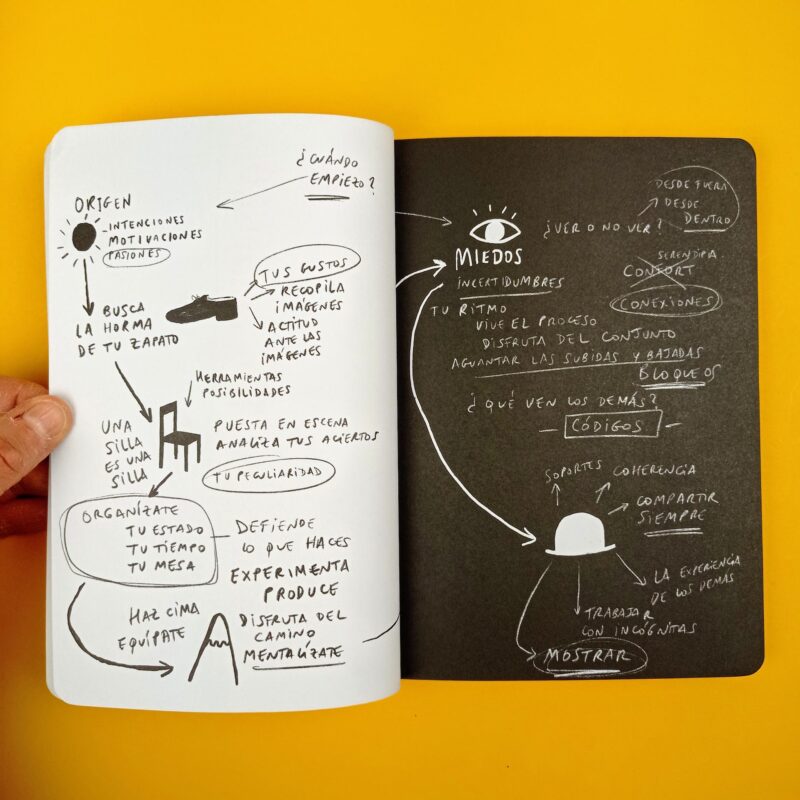 ¿CUÁNDO
EMPIEZO?
ORIGEN
- INTENCIONES
MOTIVACIONES
PASIONES
BUSCA
LA HORMA
DE TU ZAPATO
TUS GUSTOS
RECOPILA
IMÁGENES
ACTITUD
ANTE LAS
IMÁGENES
HERRAMIENTAS
POSIBILIDADES
UNA
SILLA
ES UNA
SILLA
PUESTA EN ESCENA
ANALIZA TUS ACIERTOS
TU PECULIARIDAD
ORGANÍZATE
TU ESTADO
TU TIEMPO
TU MESA
DEFIENDE
LO QUE HACES
EXPERIMENTA
PRODUCE
HAZ CIMA
EQUÍPATE
DISFRUTA DEL
CAMINO
MENTALÍZATE
DESDE FUERA
DESDE
DENTRO
¿VER O NO VER?
MIEDOS
INCERTIDUMBRES
SERENDIPIA
CONFORT
CONEXIONES
TU RITMO
VIVE EL PROCESO
DISFRUTA DEL CONJUNTO
AGUANTAR LAS SUBIDAS Y BAJADAS
BLOQUEOS
¿QUÉ VEN LOS DEMÁS?
- CÓDIGOS -
SOPORTES
COHERENCIA
COMPARTIR
SIEMPRE
LA EXPERIENCIA
DE LOS DEMÁS
TRABAJAR
CON INCÓGNITAS
MOSTRAR